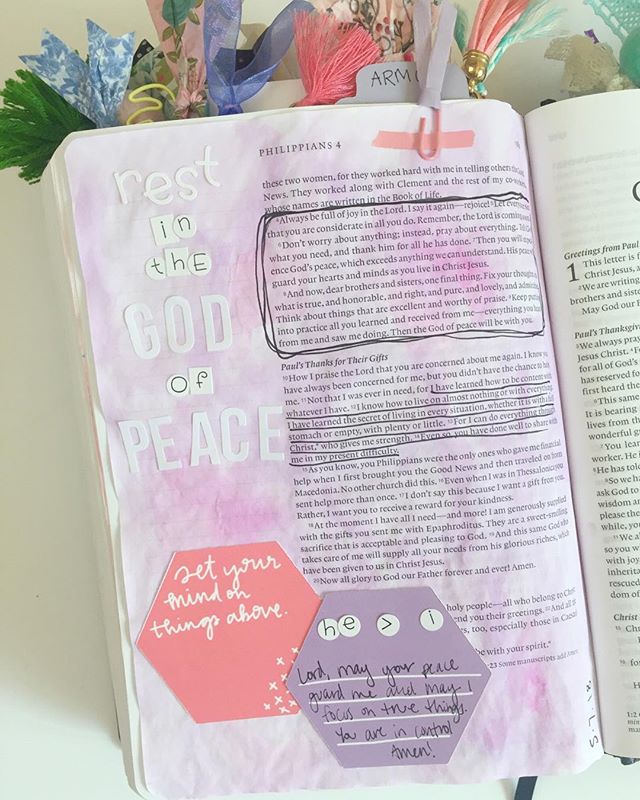 ARM
PHILIPPIANS 4
rest
in
thE
GOD
of
PEACE
these two women, for they worked hard with me in telling others the
News. They worked along with Clement and the rest of my
whose names are written in the Book of Life.
4Always be full of joy in the Lord. I say it again—rejoice! 5Let everyone
that you are considerate in all you do. Remember, the Lord is coming
6Don't worry about anything; instead, pray about everything. Tell God
what you need, and thank him for all he has done. 7Then you will
ence God's peace, which exceeds anything we can understand. His peace
guard your hearts and minds as you live in Christ Jesus.
8And now, dear brothers and sisters, one final thing. Fix your thoughts
what is true, and honorable, and right, and pure, and lovely, and
Think about things that are excellent and worthy of praise. 9Keep putting
into practice all you learned and received from me—everything you
from me and saw me doing. Then the God of peace will be with you.
Paul's Thanks for Their Gifts
10How I praise the Lord that you are concerned about me again. I know you
have always been concerned for me, but you didn't have the chance to help
me. 11Not that I was ever in need, for I have learned how to be content with
whatever I have. 12I know how to live on almost nothing or with everything.
I have learned the secret of living in every situation, whether it is with a full
stomach or empty, with plenty or little. 13For I can do everything through
Christ,* who gives me strength. 14Even so, you have done well to share with
me in my present difficulty.
15As you know, you Philippians were the only ones who gave me financial
help when I first brought you the Good News and then traveled on from
Macedonia. No other church did this. 16Even when I was in Thessalonica you
sent help more than once. 17I don't say this because I want a gift from you.
Rather, I want you to receive a reward for your kindness.
18At the moment I have all I need—and more! I am generously supplied
with the gifts you sent me with Epaphroditus. They are a sweet-smelling
sacrifice that is acceptable and pleasing to God. 19And this same God who
takes care of me will supply all your needs from his glorious riches, which
have been given to us in Christ Jesus.
20Now all glory to God our Father forever and ever! Amen.
holy people—all who belong to Christ
end you their greetings. 22And all
too, especially those in Caesar
be with your spirit.*
23 Some manuscripts add Amen.
set your
mind on
things above.
he > i
Lord, may your peace
guard me and may I
focus on true things.
You are in control
Amen!
Greetings from Paul
1 This letter is f
Christ Jesus,
We are writing
brothers and sister
May God our
Paul's Thanksgiv
We always pray
Jesus Christ.
for all of God's
has reserved fo
first heard the
This same
It is bearing
lives from the
wonderful g
You learn
worker. He i
He has told
So we ha
ask God to
wisdom and
please the
while, you
We a
so you w
with joy
inherita
rescued
dom of
Christ